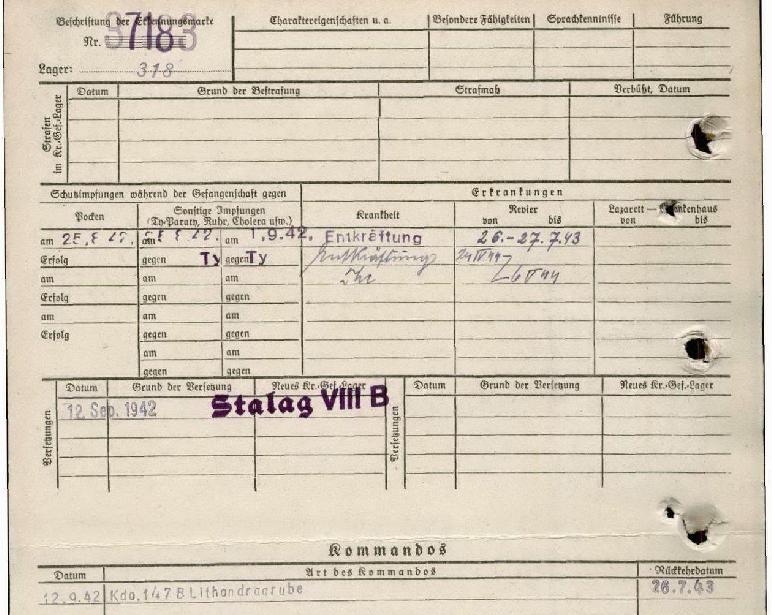 Beschriftung der Erkennungsmarke
Nr. 37183
Lager: 318
Charaktereigenschaften u. a.
Besondere Fähigkeiten
Sprachkenntnisse
Führung
Strafen im Kr.-Gef.-Lager
Datum
Grund der Bestrafung
Strafmaß
Verbüßt, Datum
Schutzimpfungen während der Gefangenschaft gegen
Erkrankungen
Pocken
Sonstige Impfungen
(Ty-Paraty, Ruhr, Cholera usw.)
Krankheit
Revier
von bis
Lazarett — Krankenhaus
von bis
am am am 1.9.42. Entkräftung 26.-27.7.43
Erfolg gegen Ty gegen Ty Entkräftung
am am am
Erfolg gegen gegen
am am am
Erfolg gegen gegen
am am
gegen gegen
Versetzungen
Datum
Grund der Versetzung
Neues Kr.-Gef.-Lager
Versetzungen
Datum
Grund der Versetzung
Neues Kr.-Gef.-Lager
12. Sep. 1942 Stalag VIII B
Kommandos
Datum
Art des Kommandos
Rückkehrdatum
12.9.42 Kdo. 147 B Lithandragrube 26.7.43